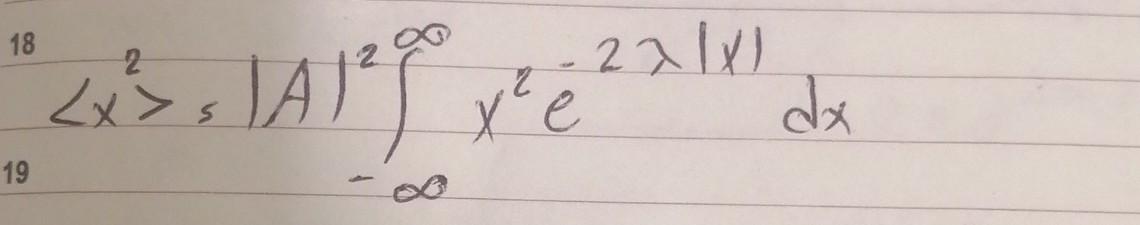 18
<x²> = |A|² ∫_{-∞}^{∞} x² e^{-2λ|x|} dx
19